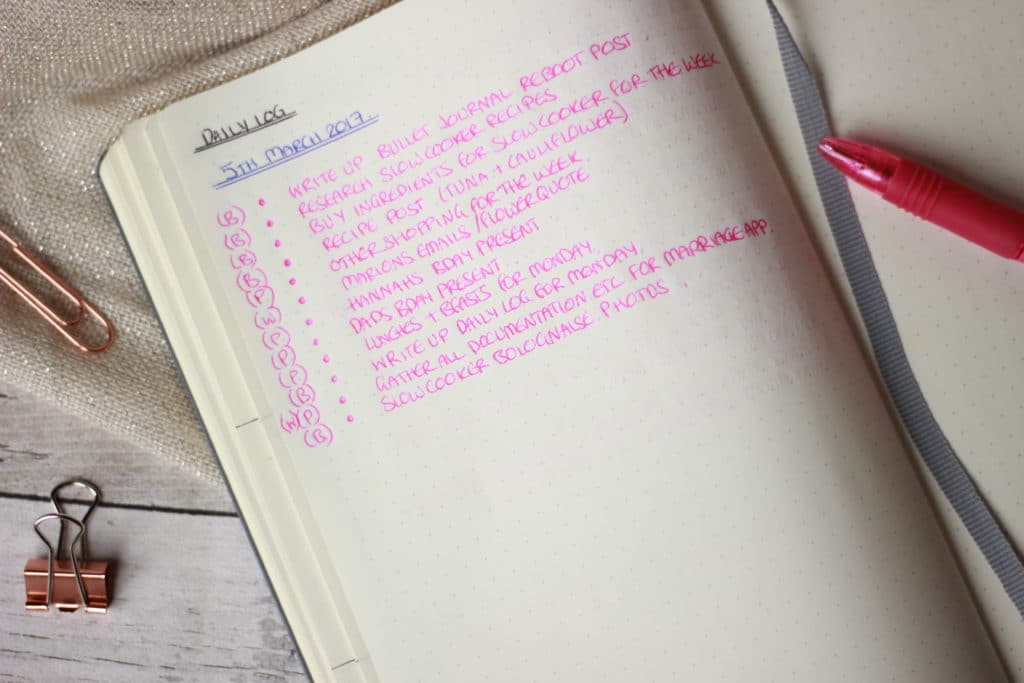 DAILY LOG
5TH MARCH 2017.
(B) • WRITE UP BULLET JOURNAL REBOOT POST.
(B) • RESEARCH SLOWCOOKER RECIPES
(B) • BUY INGREDIENTS FOR SLOWCOOKER FOR THE WEEK
(B) • RECIPE POST (TUNA + CAULIFLOWER)
(P) • OTHER SHOPPING FOR THE WEEK
(W) • MARLONS EMAILS / FLOWER QUOTE
(P) • HANNAHS BDAY PRESENT
(P) • DADS BDAY PRESENT
(P) • LUNCHES + BFASTS FOR MONDAY
(B) • WRITE UP DAILY LOG FOR MONDAY
(W)(P) • GATHER ALL DOCUMENTATION ETC FOR MARRIAGE APP.
(B) • SLOWCOOKER BOLOGNAISE PHOTOS.